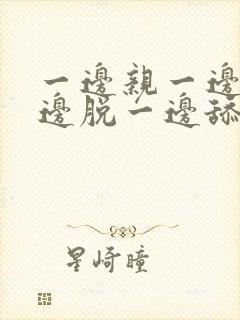 一邊親一邊
邊脱一邊舔
星崎瞳